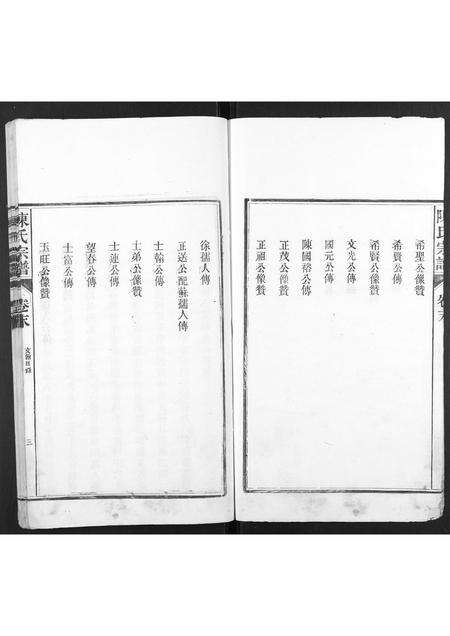 陳氏宗譜
卷末
希聖公像贊
希賓公傳
希賢公像贊
文光公傳
國元公傳
陳國裕公傳
正茂公像贊
正祖公像贊
徐孺人傳
正送公配蘇孺人傳
士翰公傳
士弟公像贊
士蓮公傳
望春公傳
士富公傳
玉旺公像贊
陳氏宗譜
卷末
文翰目錄
三